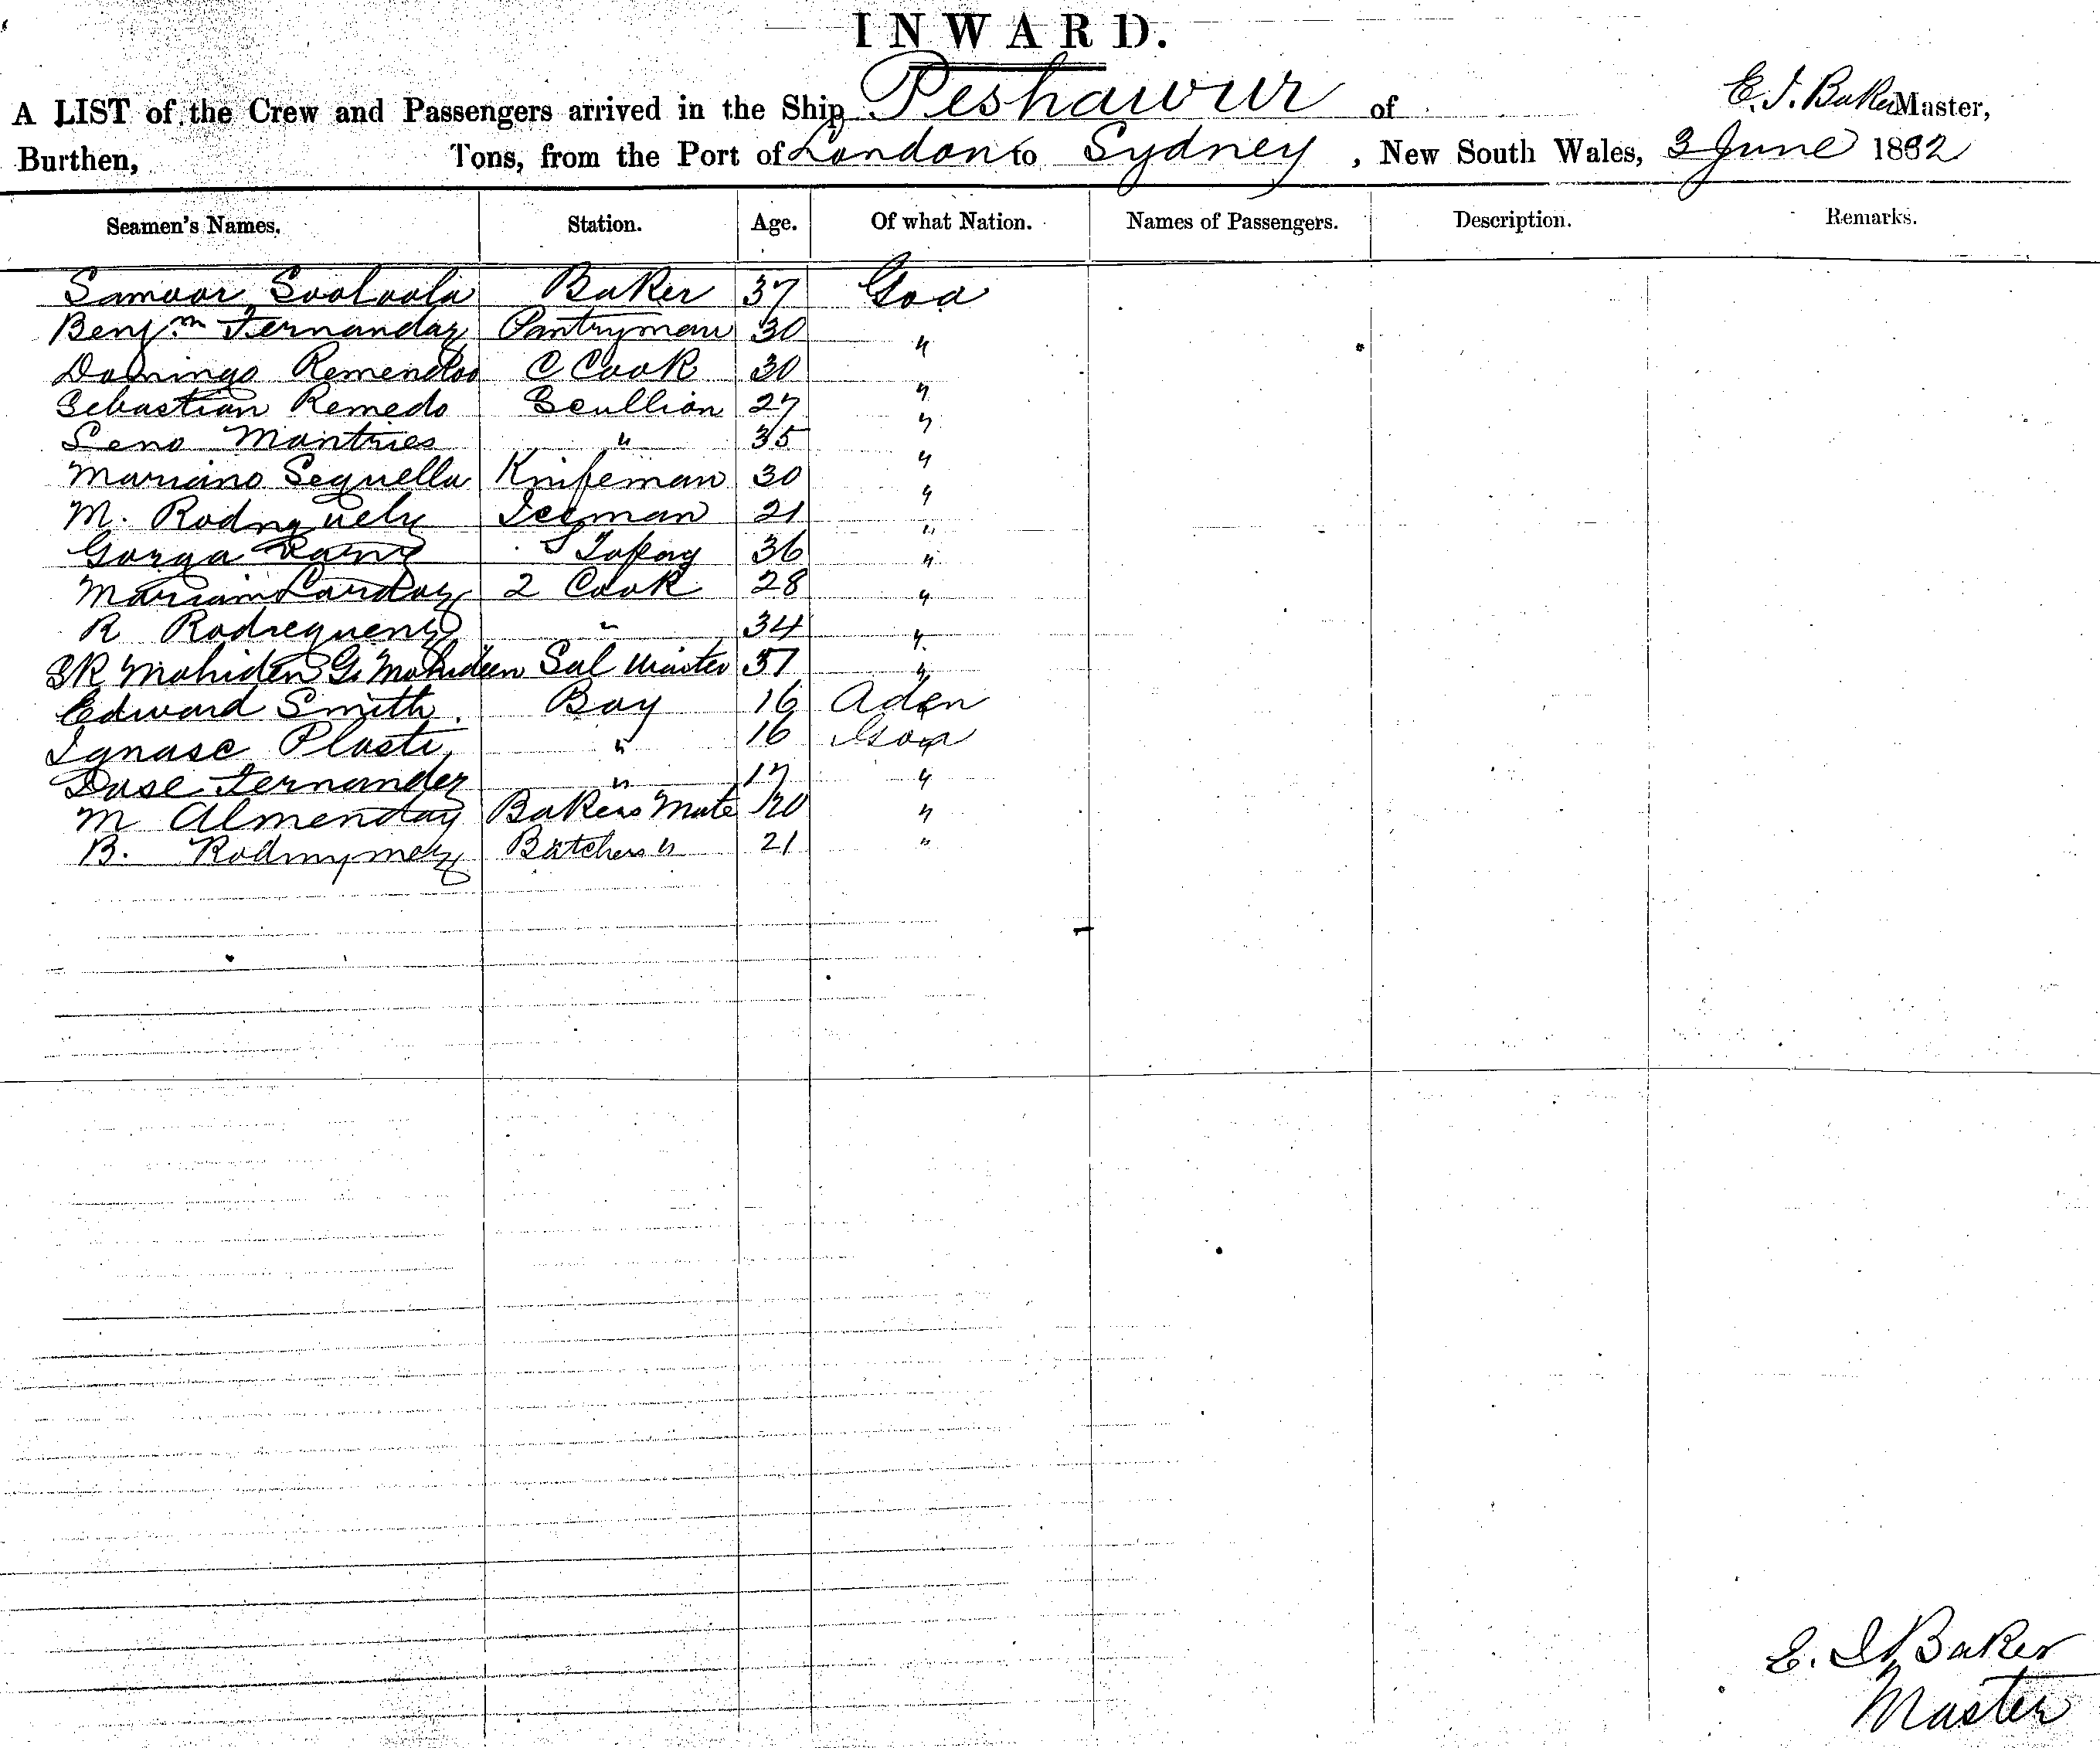 INWARD.
A LIST of the Crew and Passengers arrived in the Ship Peshawur of E. J. Baker Master,
Burthen, Tons, from the Port of London to Sydney, New South Wales, 3 June 1882
Seamen's Names. Station. Age. Of what Nation. Names of Passengers. Description. Remarks.
Baker 37 Goa
Benjm Fernandaz Pantryman 30 "
Domingo C Cook 30 "
Sebastian Remedo Scullion 27 "
Mantries " 35 "
Mariano Sequella Knifeman 30 "
M. 21 "
Topay 36 "
Cardoz 2 Cook 28 "
R Rodrequenz " 34 "
SR Mohiden G. Mohideen Sal Waiter "
Edward Smith. Boy 16 Aden
Ignase " 16 Goa
Fernandez " 17 "
M Almenday Bakers Mate 20 "
B. Butchers " 21 "
E. J. Baker
Master